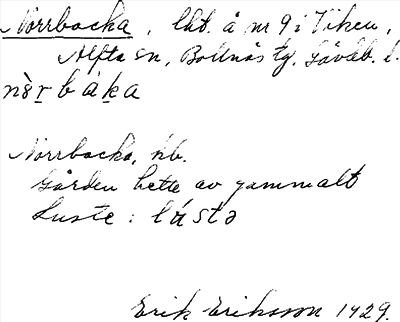 Norrbacka, lht. å nr 9 i Viken,
Alfta sn, Bollnäs tg. Gävleb. l.
nòr̲bák̲a
Norrbacka, hb.
Gården hette av gammalt
Luste: lústə
Erik Eriksson 1929.